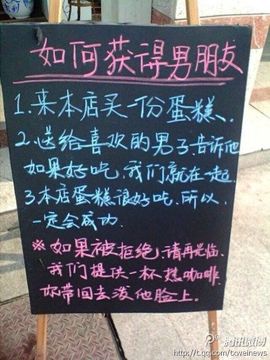 如何获得男朋友
1.来本店买一份蛋糕、
2.送给喜欢的男子告诉他
如果好吃,我们就在一起.
3本店蛋糕很好吃.所以
一定会成功.
※如果被拒绝,请再光临.
我们提供一杯焦咖啡
你带回去泼他脸上.
腾讯微博
http://t.qq.com/cbweinews